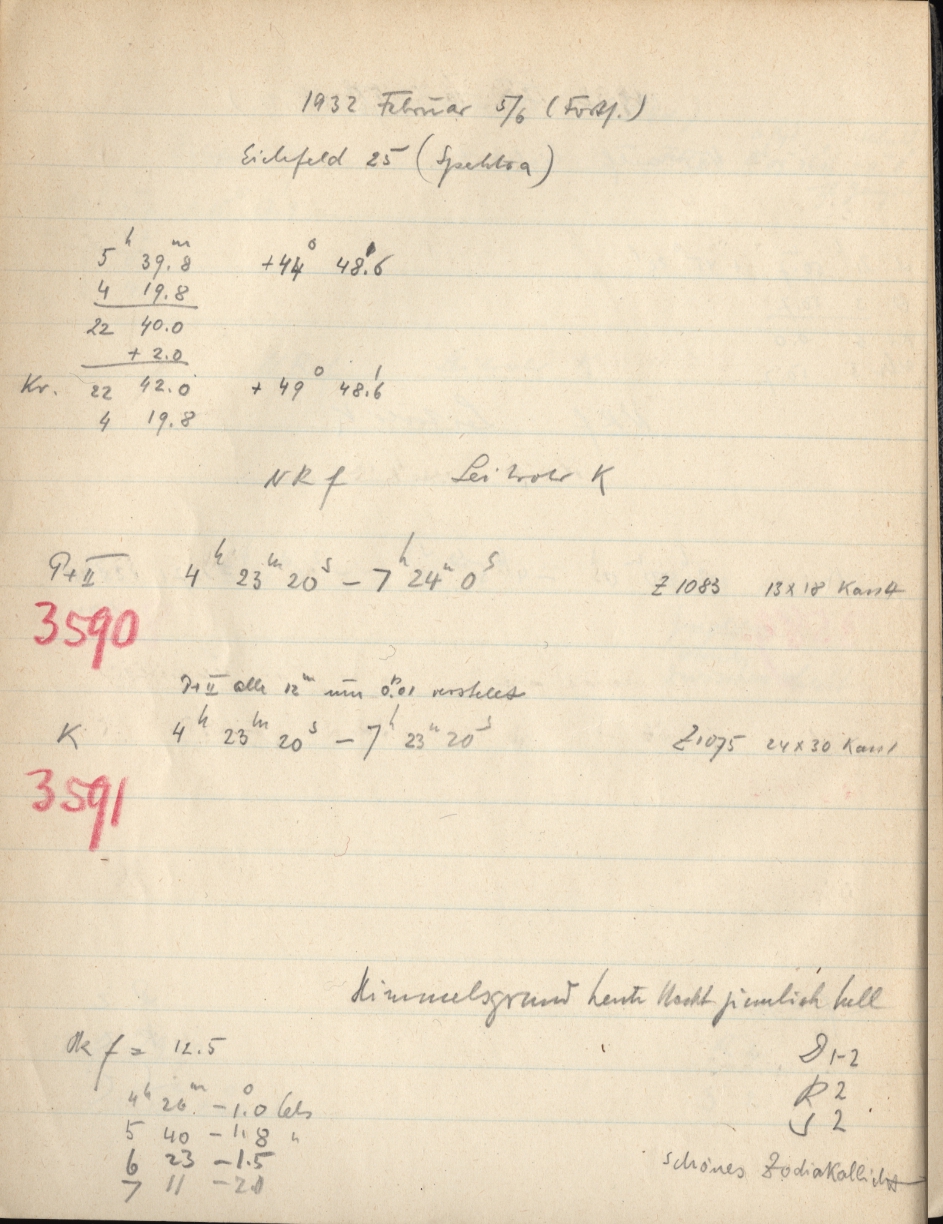 1932 Februar 5/6 (Forts.)
Eichfeld 25 (Spektra)
5ʰ 39.8ᵐ +44° 48.'6
4 19.8
22 40.0
+ 2.0
Kr. 22 42.0 + 49° 48.'6
4 19.8
NR f Leitrohr K
P+II 4ʰ 23ᵐ 20ˢ – 7ʰ 24ᵐ 0ˢ Z 1083 13x18 Kass4
3590
P+II alle 12ᵐ um 0.01 verstellt
K 4ʰ 23ᵐ 20ˢ – 7ʰ 23ᵐ 20ˢ Z1075 24x30 Kass1
3591
Himmelsgrund heute Nacht ziemlich hell
f = 12.5 D 1-2
4ʰ 26ᵐ – 1.°0 Cels R 2
5 40 – 1.8 " J 2
6 23 – 1.5
7 11 – 2.0 schönes Zodiakallicht